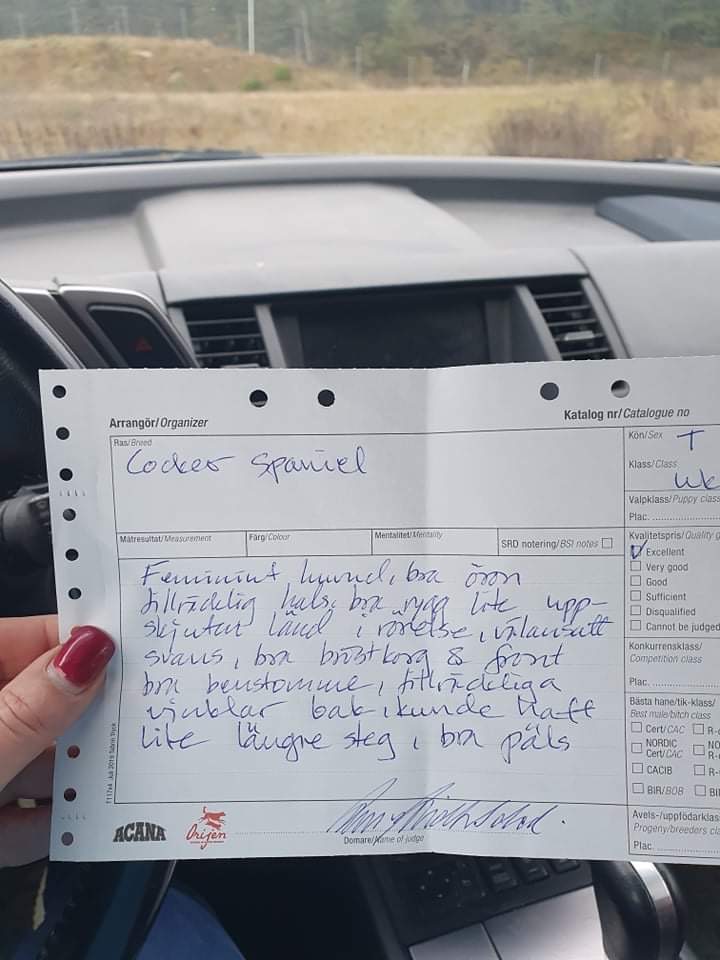 Arrangör/Organizer
Katalog nr/Catalogue no
Ras/Breed
Cocker Spaniel
Kön/Sex T
Klasse/Class
Valpklass/Puppy class
Plac.
Mätresultat/Measurement
Färg/Colour
Mentalitet/Mentality
SRD notering/BSI notes
Kvalitetspris/Quality g
Excellent
Very good
Good
Sufficient
Disqualified
Cannot be judged
Feminint huvud, bra öron
tillräcklig hals, bra rygg lite upp-
skjuten länd i rörelse, välansatt
svans, bra bröstkorg & front
bra benstomme, tillräckliga
vinklar bak, kunde haft
lite längre steg, bra päls
Konkurrensklass/
Competition class
Plac.
Bästa hane/tik-klass/
Best male/bitch class
Cert/CAC R-
NORDIC
Cert/CAC
CACIB R-
BIR/BOB BI
Avels-/uppfödarklass
Progeny/breeders cla
Plac.
ACANA
Orijen
Domare/Name of judge